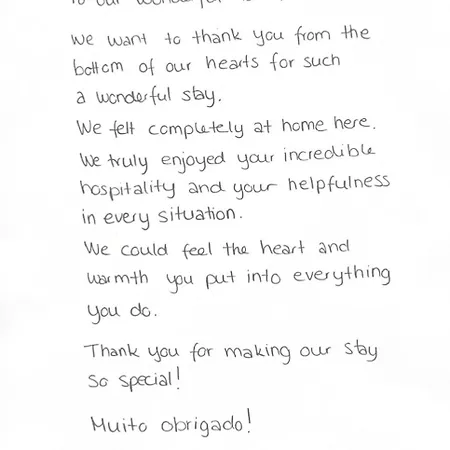 to our wonderful
We want to thank you from the
bottom of our hearts for such
a wonderful stay.
We felt completely at home here.
We truly enjoyed your incredible
hospitality and your helpfulness
in every situation.
We could feel the heart and
warmth you put into everything
you do.
Thank you for making our stay
so special!
Muito obrigado!